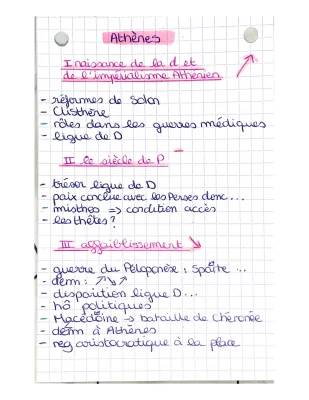 Athènes
I naissance de la d et
de l'impérialisme Athénien
- réformes de Solon
- Clisthène
- rôles dans les guerres médiques
- ligue de D
II le siècle de P
- trésor ligue de D
- paix conclue avec les Perses donc...
- misthos => condition accès
- les thètes ?
III affaiblissement ↘
- guerre du Péloponèse : Sparte ...
- dém : ↗↘↗
- disparition ligue D...
- hô politiques
- Macédoine → bataille de Chéronée
- dém à Athènes
- reg aristocratique à la place